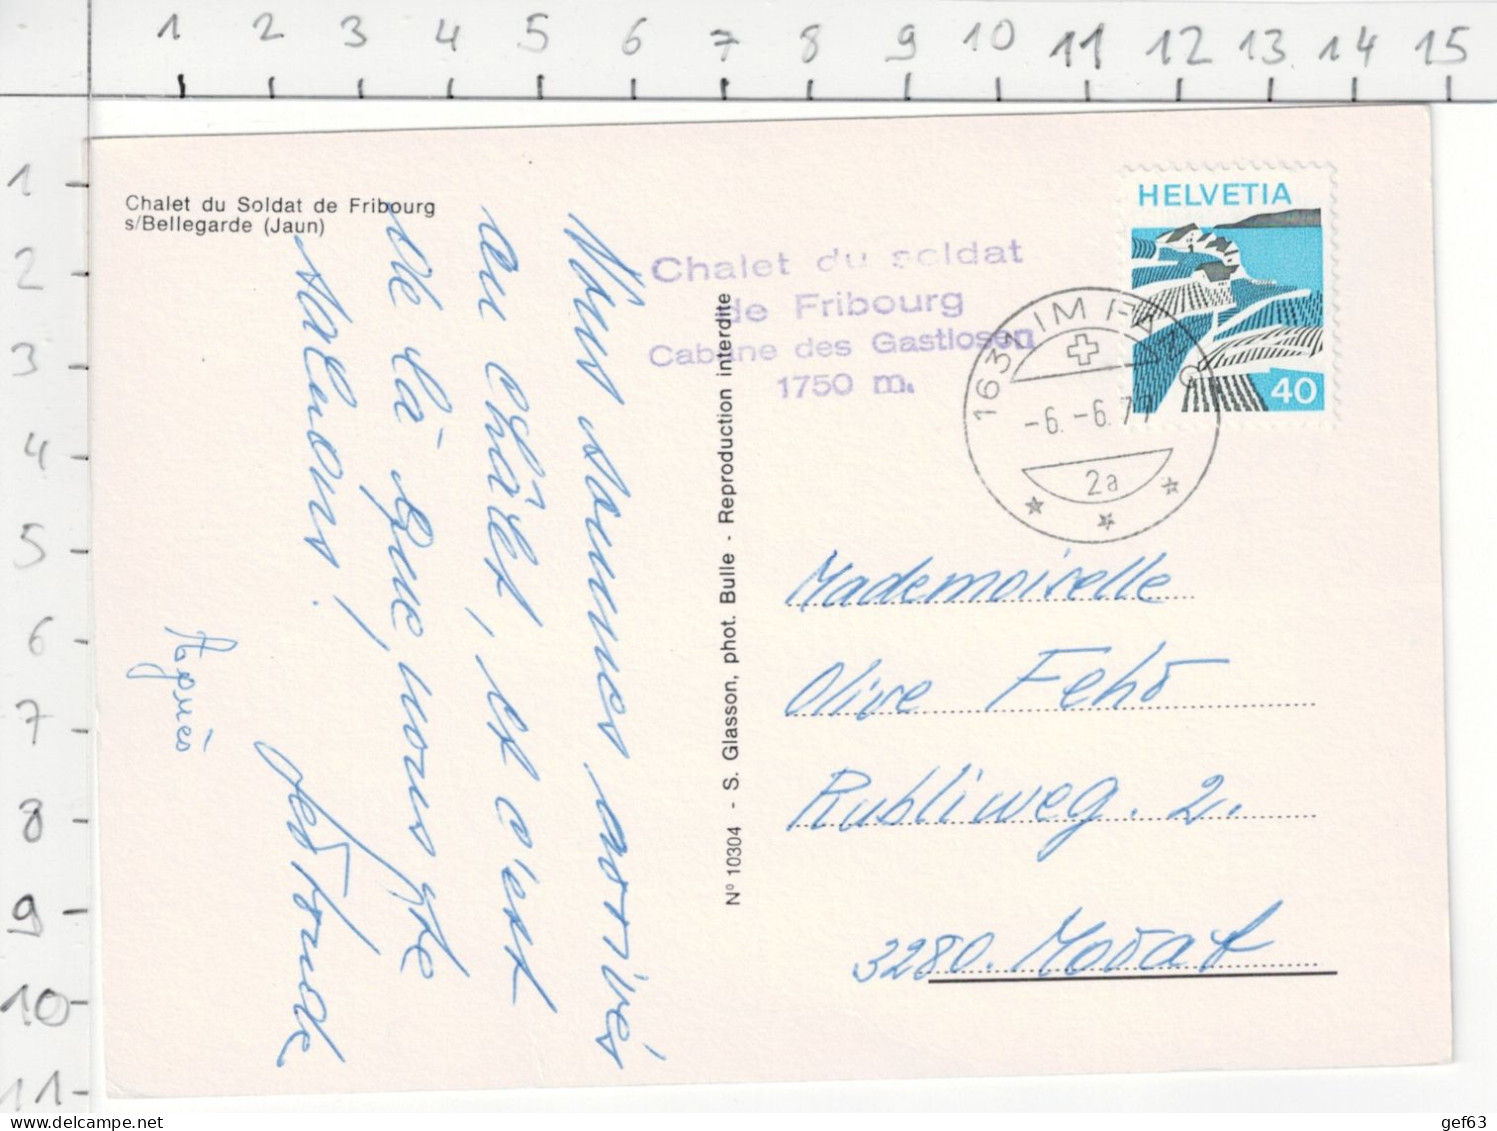 1 2 3 4 5 6 7 8 9 10 11 12 13 14 15
1
2
3
4
5
6
7
8
9
10
11
Chalet du Soldat de Fribourg
s/Bellegarde (Jaun)
Chalet du soldat
de Fribourg
Cabane des Gastlosen
1750 m.
HELVETIA
40
163 IM F
-6.-6.7
2a
Nous sommes arrivés
au châlet, et c'est
de là que nous te
saluons!
Agnès
Nº 10304 - S. Glasson, phot. Bulle - Reproduction interdite
Mademoiselle
Olive
Rubliweg. 2.
3280. Morat
gef63